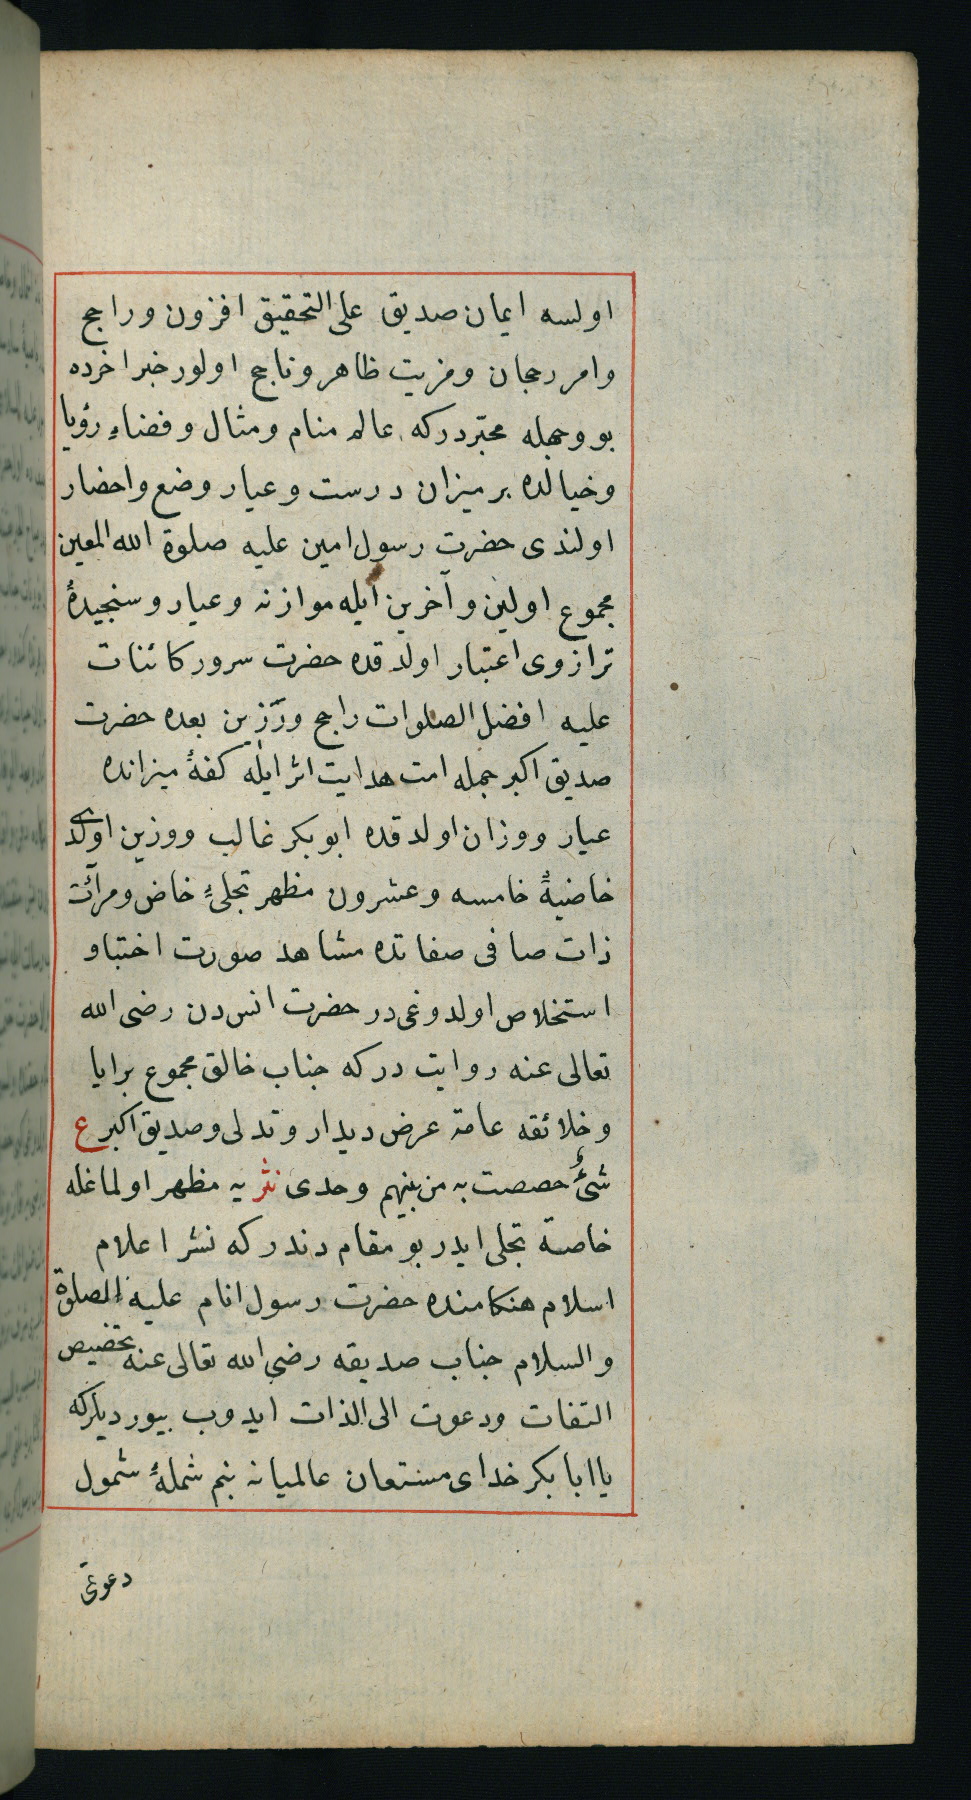 اولسه ایمان صدیق علی التحقیق افزون و راجح
وامر رجحان ومزیت ظاهر وناجح اولور خبر اخرده
بو وجهله محبردرکه عالم منام ومثال وفضاء رؤیا
وخیالده بر میزان درست وعیار وضع واحضار
اولندی حضرت رسول امین علیه صلوة الله المعین
مجموع اولین وآخرین ایله موازنه وعیار وسنجیدهٔ
ترازوی اعتبار اولدقده حضرت سرور کائنات
علیه افضل الصلوات راجح ورزین بعده حضرت
صدیق اکبر جمله امت هدایت اثر ایله کفهٔ میزانده
عیار ووزان اولدقده ابو بکر غالب ووزین اولدی
خاصیهٔ خامسه وعشرون مظهر تجلیٔ خاص ومرآت
ذات صافی صفاتده مشاهد صورت اختبا و
استخلاص اولدوغی در حضرت انس دن رضی الله
تعالی عنه روایت درکه جناب خالق مجموع برایا
وخلائقه عامة عرض دیدار وتدلی وصدیق اکبر ع
شئ خصصت به من بینهم وحدی نثر یه مظهر اولماغله
خاصة تجلی ایدر بو مقام دندر که نشر اعلام
اسلام هنکامنده حضرت رسول انام علیه الصلوة
والسلام جناب صدیقه رضی الله تعالی عنه تخصیص
التفات ودعوت الی الذات ایدوب بیوردیلرکه
یا ابا بکر خدای مستعان عالمیانه بنم شملهٔ شمول
دعوتی